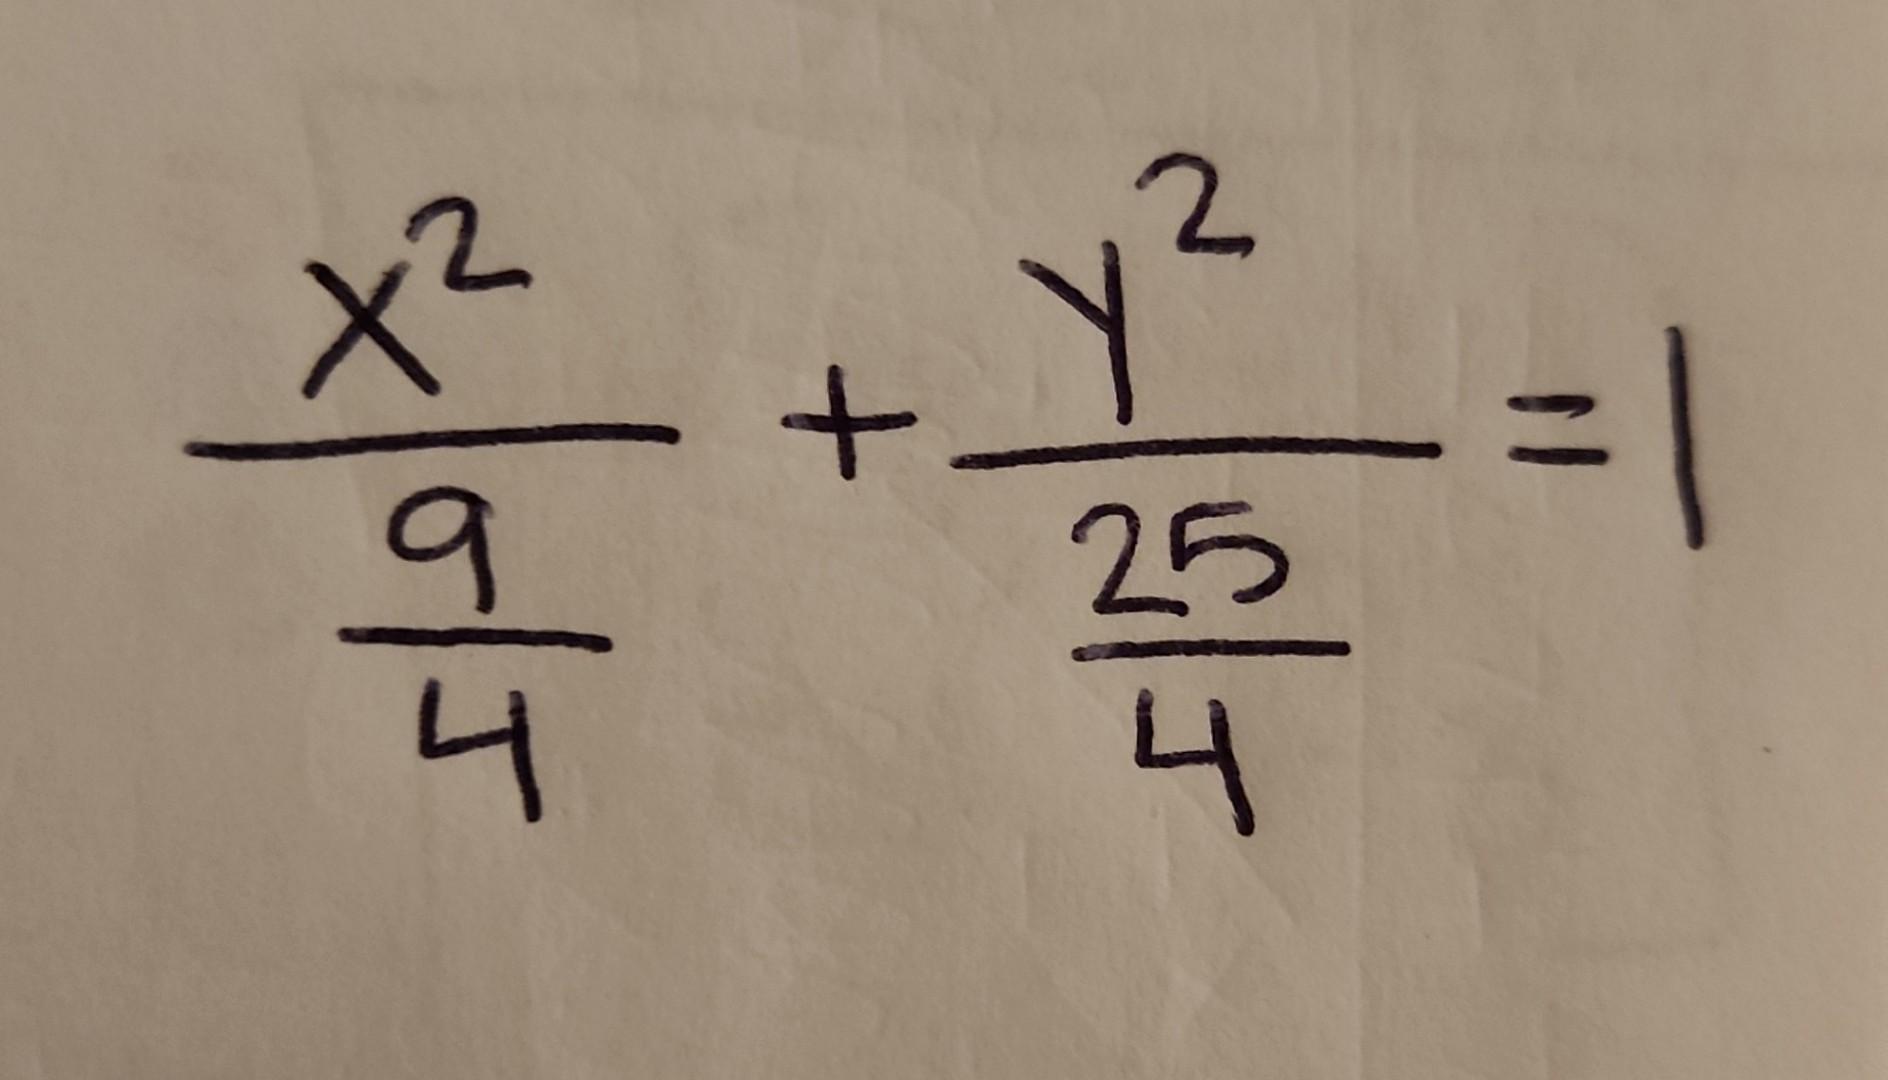 x²/(9/4) + y²/(25/4) = 1